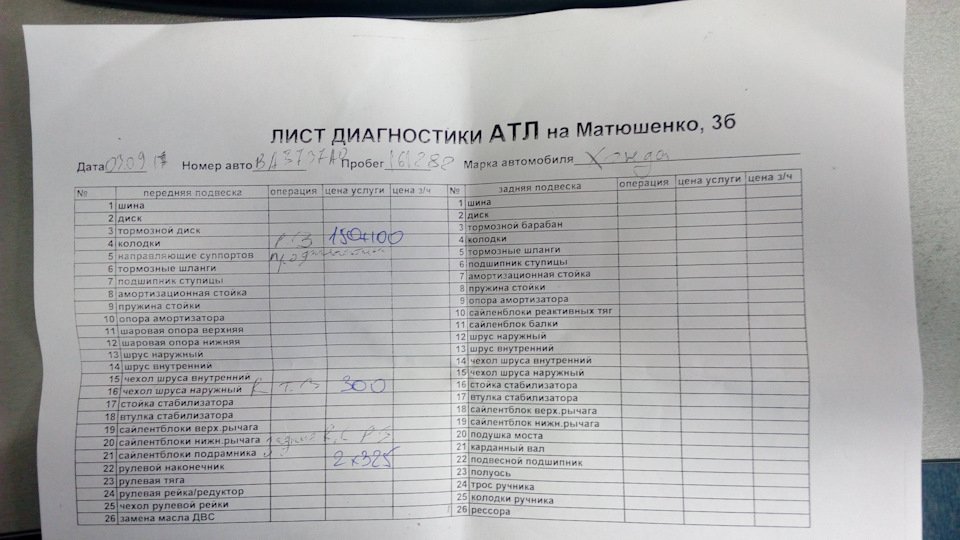 ЛИСТ ДИАГНОСТИКИ АТЛ на Матюшенко, 3б
Дата 09.09 17 Номер авто ВА3737АО Пробег 161282 Марка автомобиля Хонда
№ передняя подвеска операция цена услуги цена з/ч № задняя подвеска операция цена услуги цена з/ч
1 шина 1 шина
2 диск 2 диск
3 тормозной диск 3 тормозной барабан
4 колодки РЗ 150+100 4 колодки
5 направляющие суппортов 5 тормозные шланги
6 тормозные шланги 6 подшипник ступицы
7 подшипник ступицы 7 амортизационная стойка
8 амортизационная стойка 8 пружина стойки
9 пружина стойки 9 опора амортизатора
10 опора амортизатора 10 сайленблок реактивных тяг
11 шаровая опора верхняя 11 сайленблок балки
12 шаровая опора нижняя 12 шрус наружный
13 шрус наружный 13 шрус внутренний
14 шрус внутренний 14 чехол шруса внутренний
15 чехол шруса внутренний 15 чехол шруса наружный
16 чехол шруса наружный 300 16 стойка стабилизатора
17 стойка стабилизатора 17 втулка стабилизатора
18 втулка стабилизатора 18 сайлентблок верх.рычага
19 сайлентблоки верх.рычага 19 сайлентблок нижн.рычага
20 сайлентблоки нижн.рычага 20 подушка моста
21 сайлентблоки подрамника 2x325 21 карданный вал
22 рулевой наконечник 22 подвесной подшипник
23 рулевая тяга 23 полуось
24 рулевая рейка/редуктор 24 трос ручника
25 чехол рулевой рейки 25 колодки ручника
26 замена масла ДВС 26 рессора